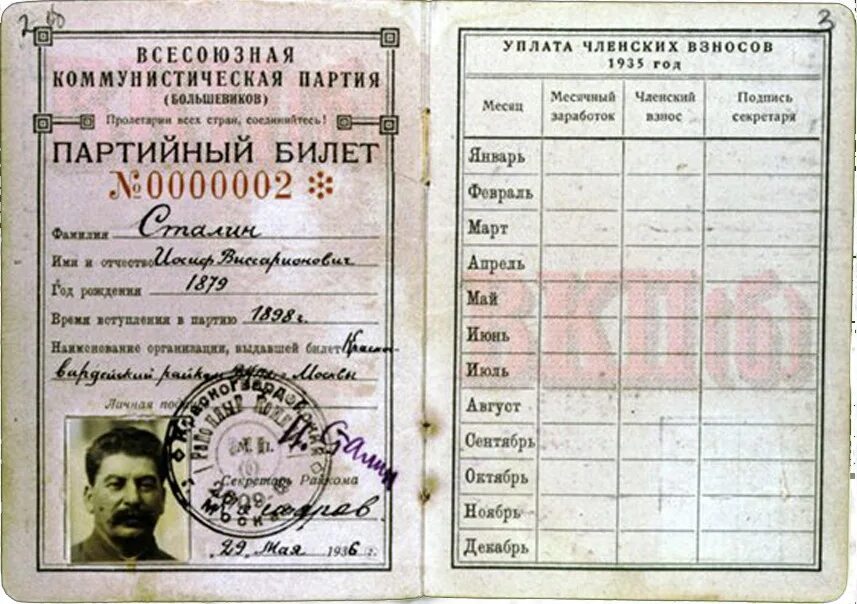 2
3
ВСЕСОЮЗНАЯ
КОММУНИСТИЧЕСКАЯ ПАРТИЯ
(БОЛЬШЕВИКОВ)
Пролетарии всех стран, соединяйтесь!
ПАРТИЙНЫЙ БИЛЕТ
№0000002
Фамилия Сталин
Имя и отчество Иосиф Виссарионович
Год рождения 1879
Время вступления в партию 1898 г.
Наименование организации, выдавшей билет Красно-
вардейский райком г. Москвы
Личная
И. Сталин
Красногвардейск
Районный
МОСК
Секретарь Райкома
"29" Мая 1936 г.
УПЛАТА ЧЛЕНСКИХ ВЗНОСОВ
1935 год
Месяц
Месячный заработок
Членский взнос
Подпись секретаря
Январь
Февраль
Март
Апрель
Май
Июнь
Июль
Август
Сентябрь
Октябрь
Ноябрь
Декабрь
ВКП(б)